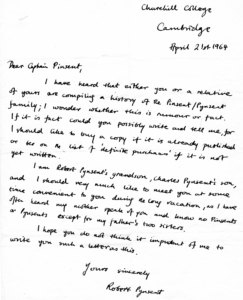 Churchill College
Cambridge
April 21st 1964
Dear Captain Pinsent,
I have heard that either you or a relative
of yours are compiling a history of the Pinsent/Pynsent
family; I wonder whether this is rumour or fact.
If it is fact could you possibly write and tell me, for
I should like to buy a copy if it is already published
or be on the list of 'definite purchasers' if it is not
yet written.
I am Robert Pynsent's grandson, Charles Pynsent's son,
and I should very much like to meet you at some
time convenient to you during the long vacation, as I have
often heard my mother speak of you and know no Pinsents
or Pynsents except for my father's two sisters.
I hope you do not think it impudent of me to
write you such a letter as this.
Yours sincerely
Robert Pynsent